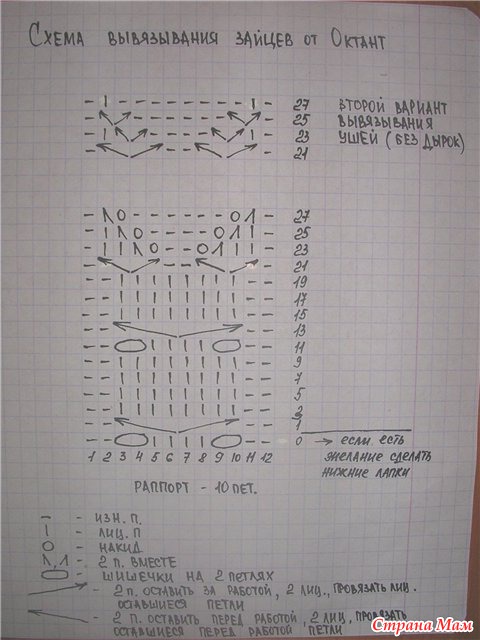 Схема вывязывания зайцев от Октант
27 второй вариант
25 вывязывания
23 ушей (без дырок)
21
27
25
23
21
19
17
15
13
11
9
7
5
2
1
0 → если есть
желание сделать
нижние лапки
1 2 3 4 5 6 7 8 9 10 11 12
раппорт - 10 пет.
- изн. п.
- лиц. п
- накид
- 2 п. вместе
- шишечки на 2 петлях
- 2 п. оставить за работой, 2 лиц., провязать лиц.
оставшиеся петли
- 2 п. оставить перед работой, 2 лиц, провязать
оставшиеся перед работой петли
Страна Мам